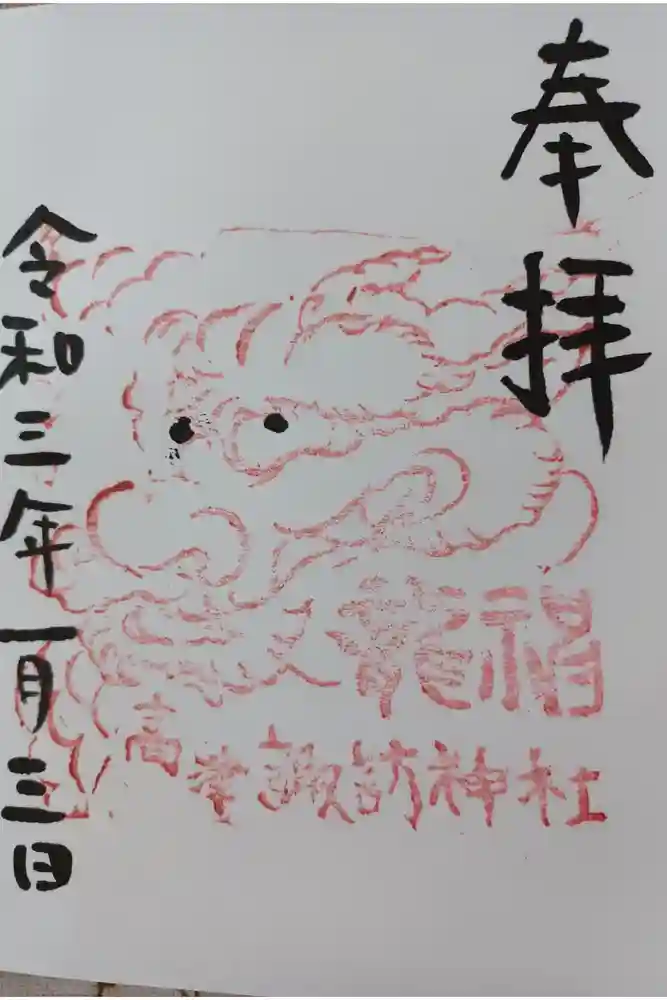 奉拝
龍福
高 諏訪神社
令和三年一月三日